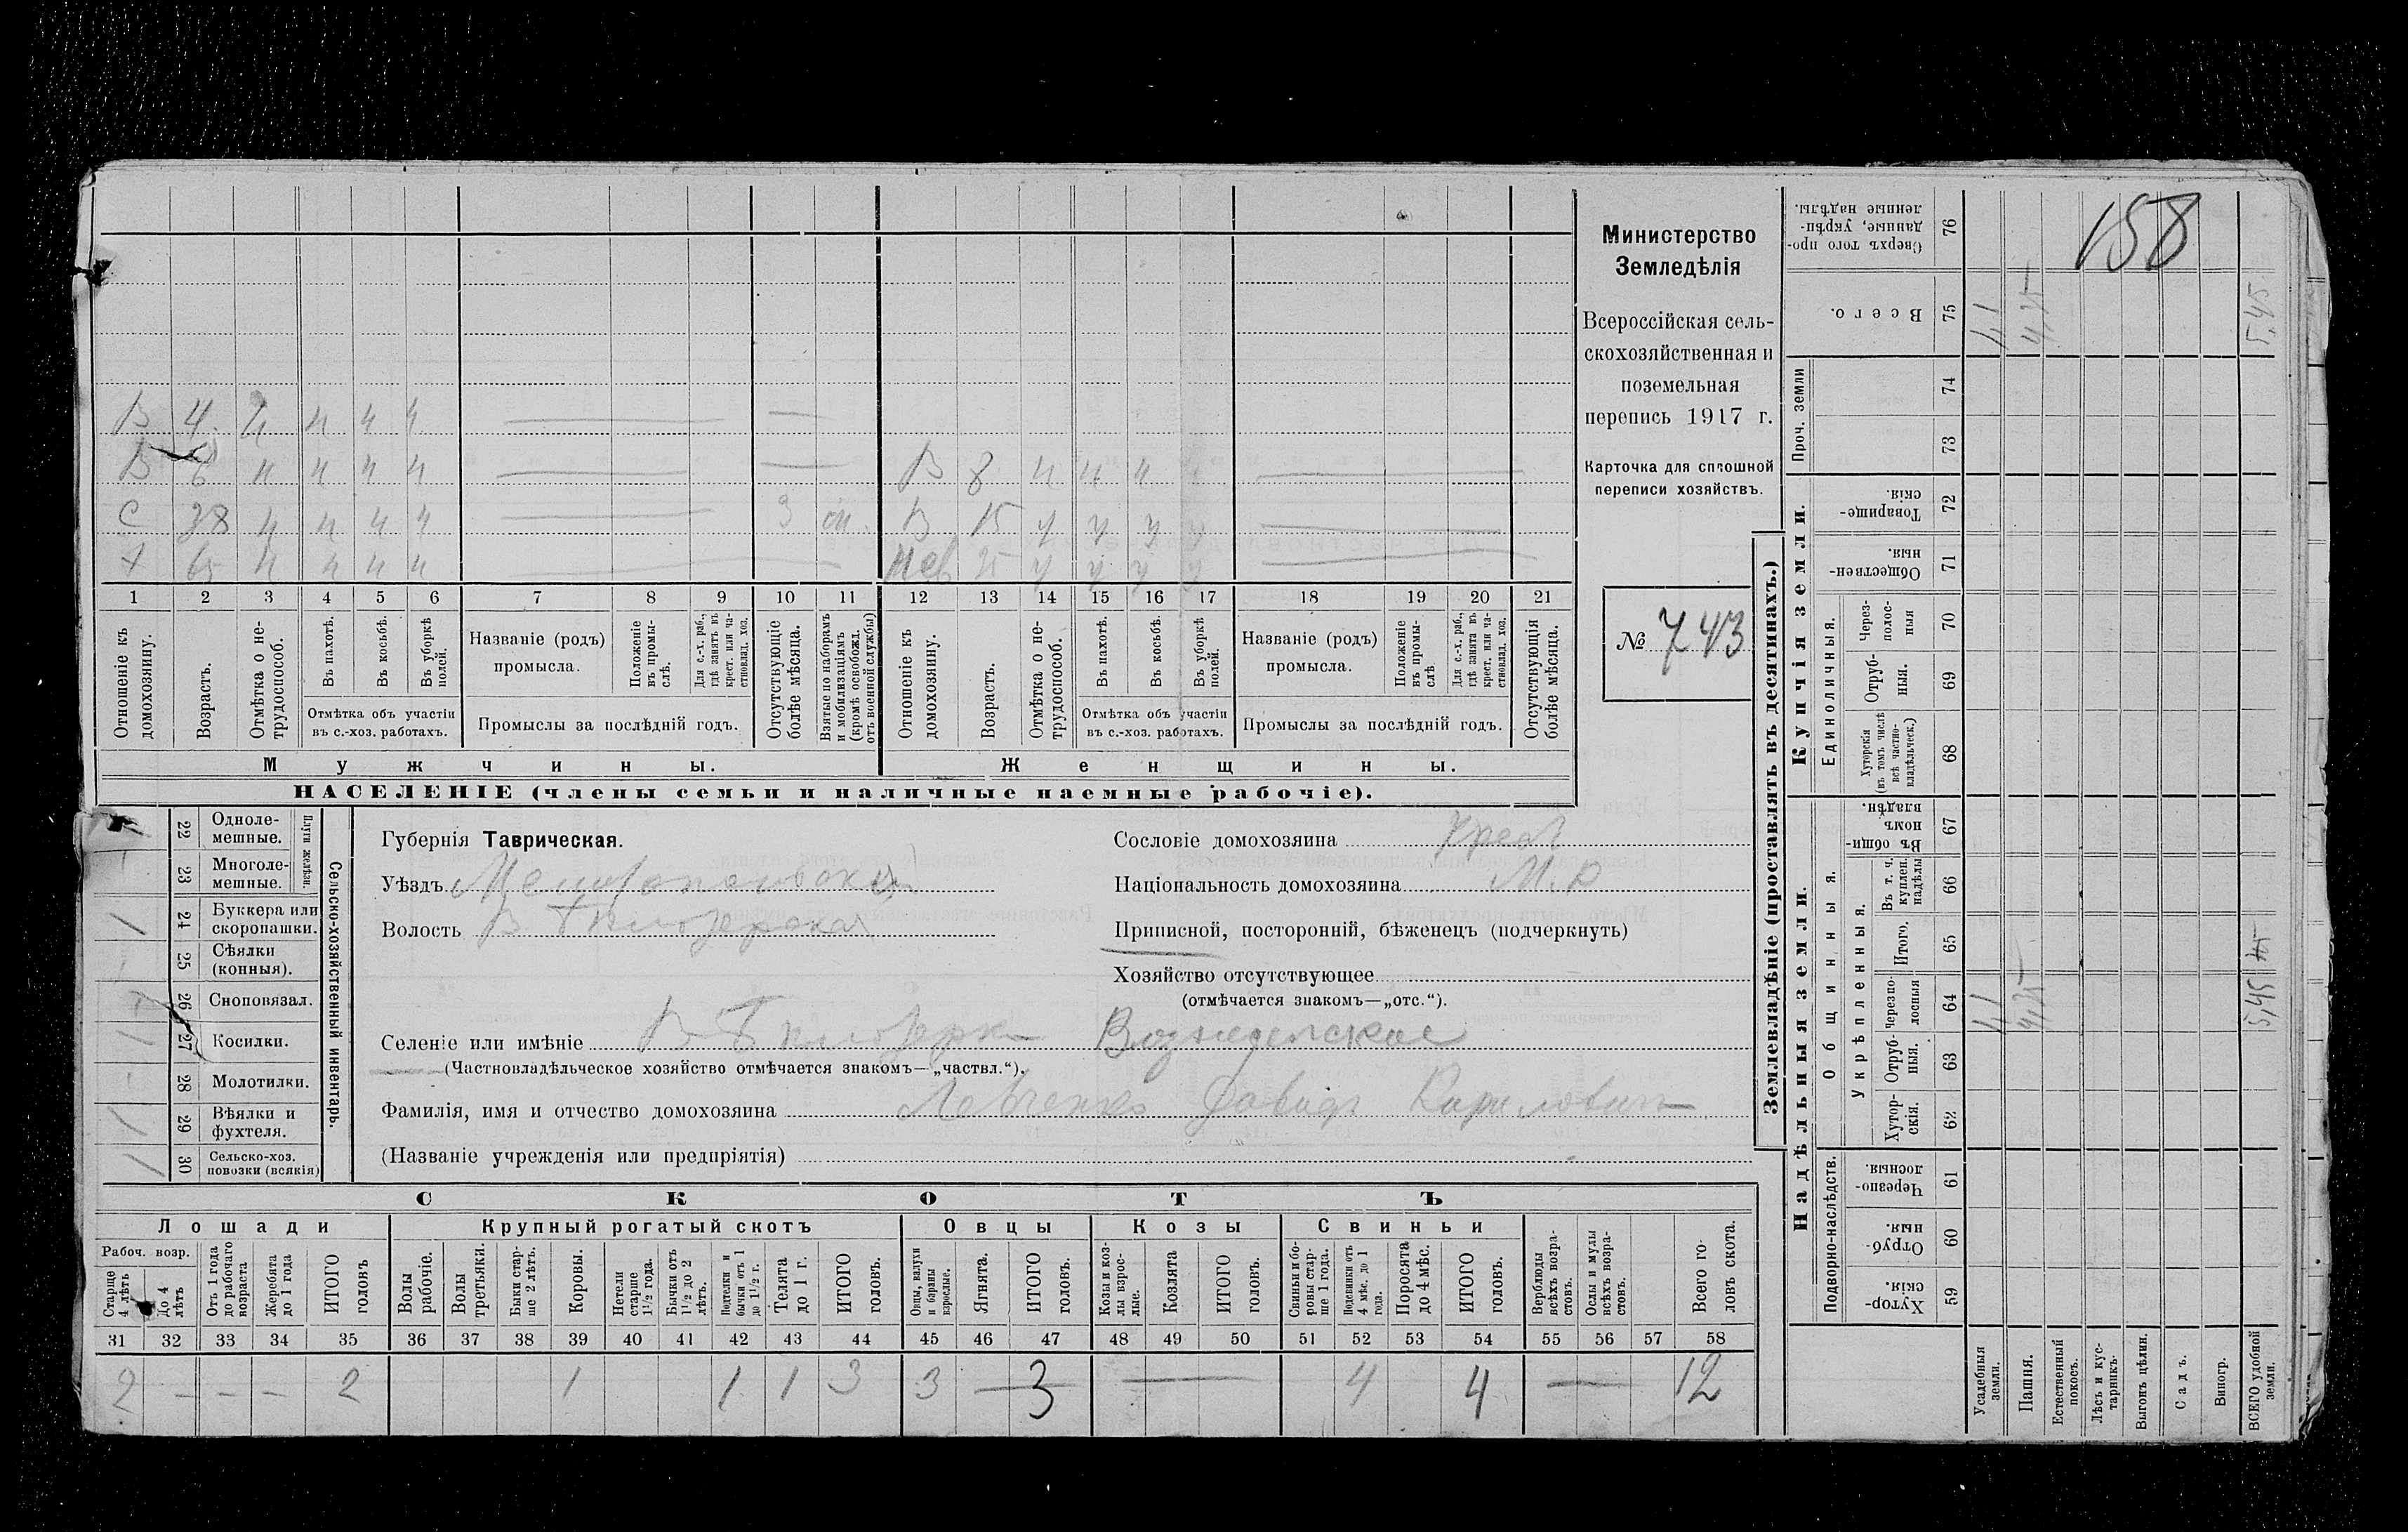 158
Министерство
Земледѣлія
Всероссійская сель-
скохозяйственная и
поземельная
перепись 1917 г.
Карточка для сплошной
переписи хозяйствъ.
№ 743
В 4 н н н н
В 6 н н н н
В 8 н н н
С 38 н н н н 3
В 15 у у у у
Х 65 н н н н
1 2 3 4 5 6 7 8 9 10 11 12 13 14 15 16 17 18 19 20 21
Отношеніе къ домохозяину.
Возрастъ.
Отмѣтка о не-трудоспособ.
Въ пахотѣ.
Въ косьбѣ.
Въ уборкѣ полей.
Отмѣтка объ участіи
въ с.-хоз. работахъ.
Названіе (родъ)
промысла.
Положеніе въ промы-слѣ.
Для с.-х. раб., гдѣ занятъ въ крест. или ча-стновлад. хоз.
Промыслы за послѣдній годъ.
Отсутствующіе болѣе мѣсяца.
Взятые по наборамъ и мобилизаціямъ (кромѣ освобожд. отъ военной службы)
Отношеніе къ домохозяину.
Возрастъ.
Отмѣтка о не-трудоспособ.
Въ пахотѣ.
Въ косьбѣ.
Въ уборкѣ полей.
Отмѣтка объ участіи
въ с.-хоз. работахъ.
Названіе (родъ)
промысла.
Положеніе въ промы-слѣ
Для с.-х. раб., гдѣ занята въ крест. или ча-стновлад. хоз.
Промыслы за послѣдній годъ.
Отсутствующія болѣе мѣсяца.
Мужчины.
Женщины.
НАСЕЛЕНІЕ (члены семьи и наличные наемные рабочіе).
Сельско-хозяйственный инвентарь.
Плуги желѣзн.
22 Однолемешные.
23 Многолемешные.
1 24 Буккера или скоропашки.
25 Сѣялки (конныя).
26 Сноповязал.
27 Косилки.
28 Молотилки.
1 29 Вѣялки и фухтеля.
1 30 Сельско-хоз. повозки (всякія)
Губернія Таврическая.
Уѣздъ Мелитопольскій
Волость В Бѣлозерская
Сословіе домохозяина
Національность домохозяина М.Р
Приписной, посторонній, бѣженецъ (подчеркнуть)
Хозяйство отсутствующее
(отмѣчается знакомъ—„отс.“).
Селеніе или имѣніе В Бѣлозерка Вознесенское
(Частновладѣльческое хозяйство отмѣчается знакомъ—„частвл.“).
Фамилія, имя и отчество домохозяина Левченко Давидъ Кириловичъ
(Названіе учрежденія или предпріятія)
СКОТЪ
Лошади
Крупный рогатый скотъ
Овцы
Козы
Свиньи
Рабоч. возр.
Старше 4 лѣтъ
До 4 лѣтъ
Отъ 1 года до рабочаго возраста
Жеребята до 1 года
ИТОГО головъ
Волы рабочіе.
Волы третьяки.
Быки стар-ше 2 лѣтъ.
Коровы.
Нетели старше 1½ года.
Бычки отъ 1½ до 2 лѣтъ.
Подтелки и бычки отъ 1 до 1½ г.
Телята до 1 г.
ИТОГО головъ.
Овцы, валухи и бараны взрослые.
Ягнята.
ИТОГО головъ.
Козы и коз-лы взрос-лые.
Козлята
ИТОГО головъ.
Свиньи и бо-ровы стар-ше 1 года.
Подсвинки отъ 4 мѣс. до 1 года.
Поросята до 4 мѣс.
ИТОГО головъ.
Верблюды всѣхъ возра-стовъ.
Ослы и мулы всѣхъ возра-стовъ.
Всего го-ловъ скота.
31 32 33 34 35 36 37 38 39 40 41 42 43 44 45 46 47 48 49 50 51 52 53 54 55 56 57 58
2 — — — 2 1 1 1 3 3 — 3 — 4 4 — 12
Землевладѣніе (проставлять въ десятинахъ.)
Купчія земли.
Надѣльныя земли.
Сверхъ того про-данные, укрѣп-ленные надѣлы. 76
Всего. 75 4,25 5,45
Проч. земли 74
73
Товарище-скія. 72
Обществен-ныя. 71
Единоличныя.
Через-полос-ныя 70
Отруб-ныя. 69
Хуторскія (въ томъ числѣ всѣ частно-владѣльческ.) 68
Общинныя.
Въ общи-номъ владѣн. 67
Укрѣпленныя.
Въ т. ч. куплен. надѣлы 66
Итого. 65
Черезпо-лосныя 64 4,25 5,45
Отруб-ныя. 63
Хутор-скія. 62
Подворно-наслѣдств.
Черезпо-лосныя. 61
Отруб-ныя. 60
Хутор-скія. 59
Усадебныя земли.
Пашня.
Естественный покосъ.
Лѣсъ и кус-тарникъ.
Выгонъ цѣлин.
Садъ.
Виногр.
ВСЕГО удобной земли.